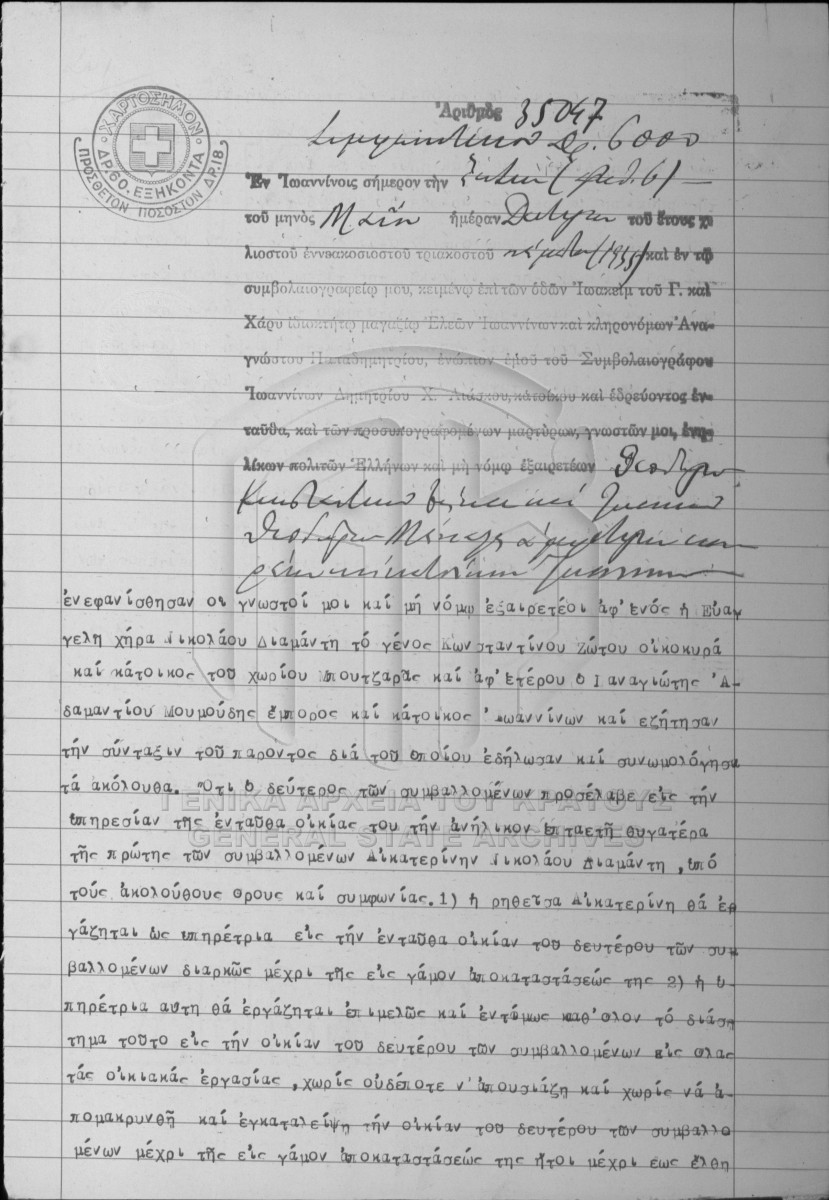 ΧΑΡΤΟΣΗΜΟΝ
ΔΡ. 60. ΕΞΗΚΟΝΤΑ
ΠΡΟΣΘΕΤΟΝ ΠΟΣΟΣΤΟΝ ΔΡ. 18.
Ἀριθμὸς 35047
Δρ. 6000
Ἐν Ἰωαννίνοις σήμερον τὴν ἕκτην (ἀριθ. 6)
τοῦ μηνὸς Μαΐου ἡμέραν Δευτέραν τοῦ ἔτους χι
λιοστοῦ ἐννεακοσιοστοῦ τριακοστοῦ πέμπτου (1935) καὶ ἐν τῷ
συμβολαιογραφείῳ μου, κειμένῳ ἐπὶ τῶν ὁδῶν Ἰωακεὶμ τοῦ Γ. καὶ
Χάρυ ἰδιοκτήτῳ μαγαζίῳ Ἐλεῶν Ἰωαννίνων καὶ κληρονόμων Ἀνα-
γνώστου Παπαδημητρίου, ἐνώπιον ἐμοῦ τοῦ Συμβολαιογράφου
Ἰωαννίνων Δημητρίου Χ. Λιάσκου, κατοίκου καὶ ἑδρεύοντος ἐν-
ταῦθα, καὶ τῶν προσυπογραφομένων μαρτύρων, γνωστῶν μοι, ἐνη-
λίκων πολιτῶν Ἑλλήνων καὶ μὴ νόμῳ ἐξαιρετέων
ἐνεφανίσθησαν οι γνωστοί μοι καί μή νόμῳ ἐξαιρετέοι ἀφ'ἑνός ἡ Εὐαγ
γελη χήρα Νικολάου Διαμάντη τό γένος Κωνσταντίνου Ζώτου οἰκοκυρά
καί κάτοικος τοῦ χωρίου Μπουτζαρᾶς καί ἀφ'ἑτέρου ὁ Παναγιώτης 'Α-
δαμαντίου Μουμούδης ἔμπορος καί κάτοικος Ἰωαννίνων καί ἐζήτησαν
τήν σύνταξιν τοῦ παρόντος διά τοῦ ὁποίου ἐδήλωσαν καί συνωμολόγησα
τά ἀκόλουθα. Ὅτι ὁ δεύτερος τῶν συμβαλλομένων προσέλαβε εἰς τήν
ὑπηρεσίαν τῆς ἐνταῦθα οἰκίας του τήν ἀνήλικον ἑπταετῆ θυγατέρα
τῆς πρώτης τῶν συμβαλλομένων Αἰκατερίνην Νικολάου Διαμάντη, ὑπό
τούς ἀκολούθους ὅρους καί συμφωνίας. 1) ἡ ρηθεῖσα Αἰκατερίνη θά ἐρ
γάζηται ὡς ὑπηρέτρια εἰς τήν ἐνταῦθα οἰκίαν τοῦ δευτέρου τῶν συμ
βαλλομένων διαρκῶς μέχρι τῆς εἰς γάμον ἀποκαταστάσεώς της 2) ἡ ὑ-
πηρέτρια αὕτη θά ἐργάζηται ἐπιμελῶς καί ἐντίμως καθ'ὅλον τό διάσ
τημα τοῦτο εἰς τήν οἰκίαν τοῦ δευτέρου τῶν συμβαλλομένων εἰς ὅλας
τάς οἰκιακάς ἐργασίας, χωρίς οὐδέποτε ν'ἀπουσιάζη καί χωρίς νά ἀ-
πομακρυνθῆ καί ἐγκαταλείψη τήν οἰκίαν τοῦ δευτέρου τῶν συμβαλλο
μένων μέχρι τῆς εἰς γάμον ἀποκαταστάσεώς της ἤτοι μέχρι ἕως ἔλθη
ΓΕΝΙΚΑ ΑΡΧΕΙΑ ΤΟΥ ΚΡΑΤΟΥΣ
GENERAL STATE ARCHIVES